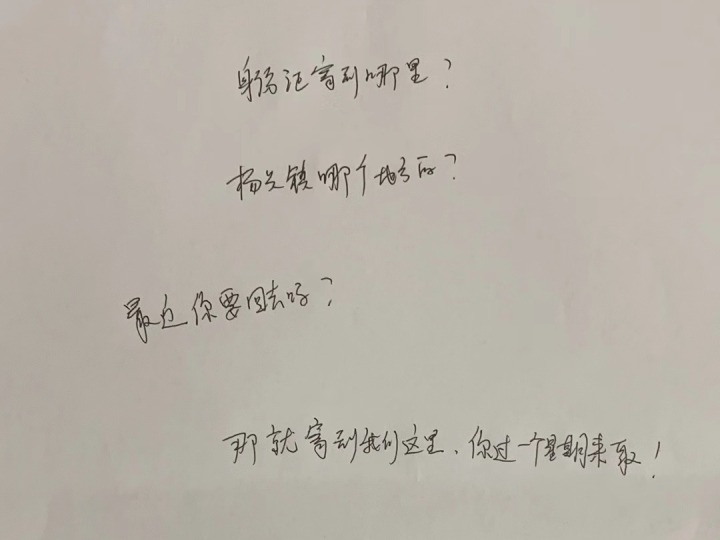 身份证寄到哪里？
杨关镇哪个地方啊？
最近你要回去呀？
那就寄到我们这里、你过一个星期来取！